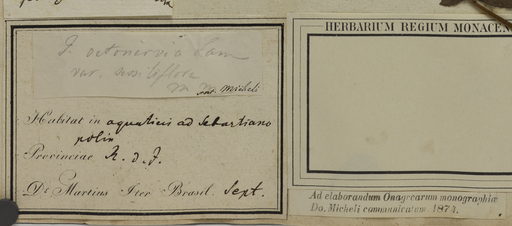 HERBARIUM REGIUM MONACEN
J. octonervia Lam
var. sessiliflora
m Micheli
Habitat in aquaticis ad Sebastiano
polin
Provinciae R. d. J.
Dr Martius Iter Brasil. Sept.
Ad elaborandum Onagrearum monographiae
Do. Micheli communicatum 1874.